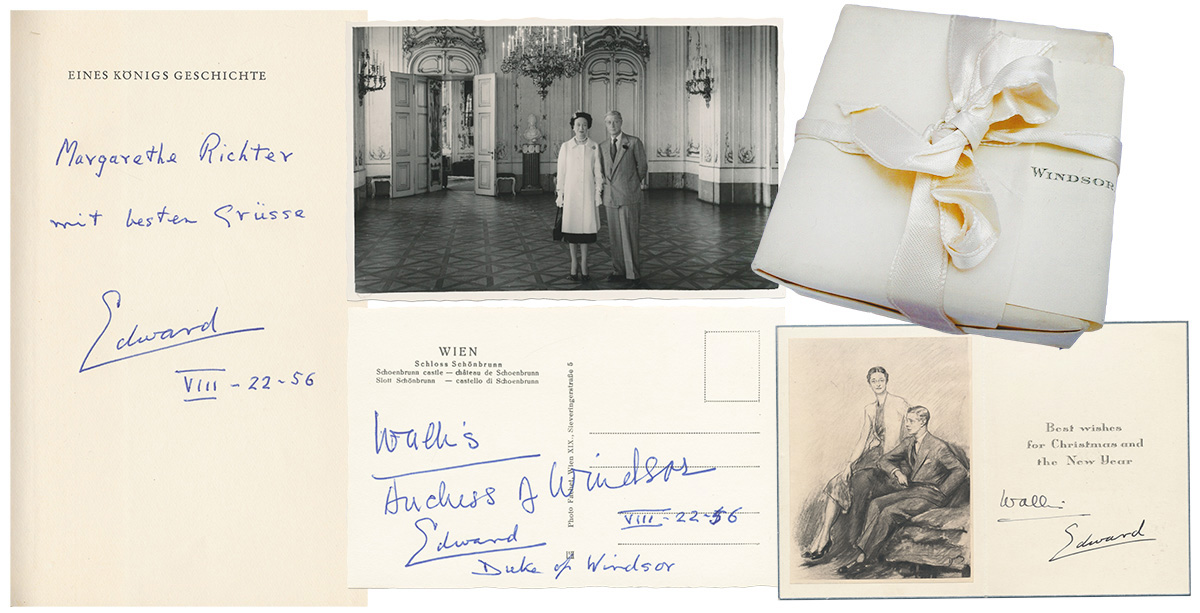 EINES KÖNIGS GESCHICHTE
Margarethe Richter
mit besten Grüsse
Edward
VIII - 22 - 56
WIEN
Schloss Schönbrunn
Schoenbrunn castle — château de Schoenbrunn
Slott Schönbrunn — castello di Schoenbrunn
Wallis
Duchess of Windsor
Edward
Duke of Windsor
VIII - 22 - 56
Wien XIX., Sieveringerstraße 5
WINDSOR
Best wishes
for Christmas and
the New Year
Wallis
Edward